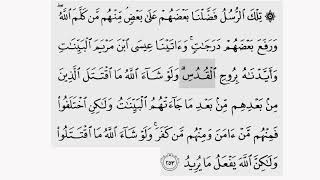 ۞ تِلْكَ ٱلرُّسُلُ فَضَّلْنَا بَعْضَهُمْ عَلَىٰ بَعْضٍ مِّنْهُم مَّن كَلَّمَ ٱللَّهُ
وَرَفَعَ بَعْضَهُمْ دَرَجَٰتٍ وَءَاتَيْنَا عِيسَى ٱبْنَ مَرْيَمَ ٱلْبَيِّنَٰتِ
وَأَيَّدْنَٰهُ بِرُوحِ ٱلْقُدُسِ وَلَوْ شَآءَ ٱللَّهُ مَا ٱقْتَتَلَ ٱلَّذِينَ
مِنۢ بَعْدِهِم مِّنۢ بَعْدِ مَا جَآءَتْهُمُ ٱلْبَيِّنَٰتُ وَلَٰكِنِ ٱخْتَلَفُوا۟
فَمِنْهُم مَّنْ ءَامَنَ وَمِنْهُم مَّن كَفَرَ وَلَوْ شَآءَ ٱللَّهُ مَا ٱقْتَتَلُوا۟
وَلَٰكِنَّ ٱللَّهَ يَفْعَلُ مَا يُرِيدُ ۝٢٥٣